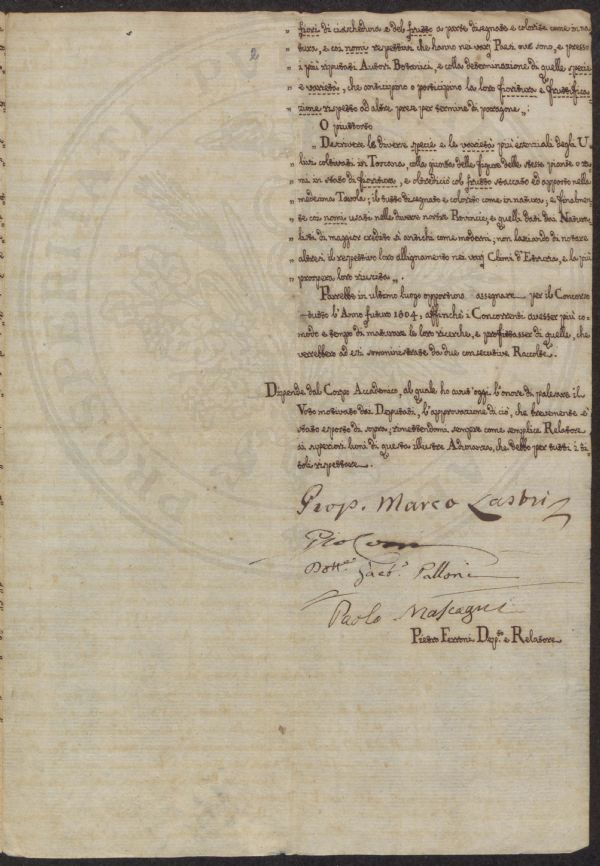 2
" fiori di ciascheduna e del frutto a parte disegnate e colorite come in na
" tura, e coi nomi respettivi che hanno nei varj Paesi ove sono, e presso
" i più riputati Autori Botanici, e colla determinazione di quelle specie
" e varietà, che anticipano o posticipano la loro fioritura e fruttifica
" zione rispetto ad altre prese per termine di paragone „:
O piuttosto
" „ Descrivere le diverse specie e le varietà più essenziali degli U
" livi coltivati in Toscana, colla giunta delle figure delle stesse piante o ra
" mi in stato di fioritura, e oltrediciò col frutto staccato ed apposto nella
" medesima Tavola; il tutto disegnato e colorito come in natura, e finalmen
" te coi nomi usati nelle diverse nostre Provincie, e quelli dati dai Natura
" listi di maggior credito sì antichi come moderni; non lasciando di notare
" altresì il respettivo loro allignamento nei varj Climi d'Etruria, e la più
" prospera loro riuscita „.
Parrebbe in ultimo luogo opportuno assegnare per il Concorso
tutto l'Anno futuro 1804, affinchè i Concorrenti avesser più co
modo e tempo di maturare le loro ricerche, e profittasser di quelle, che
verrebbero ad essi somministrate da due consecutive Raccolte.
Dipende dal Corpo Accademico, al quale ho avut'oggi l'onore di palesare il
Voto motivato dei Deputati, l'approvazione di ciò, che brevemente è
stato esposto di sopra; rimettendomi sempre come semplice Relatore
ai superiori lumi di questa illustre Adunanza, che debbo per tutti i ti
toli rispettare.
Prop. Marco Lastri
Dott.re Gaet.o Palloni
Paolo Mascagni
Pietro Ferroni Dep.to e Relatore